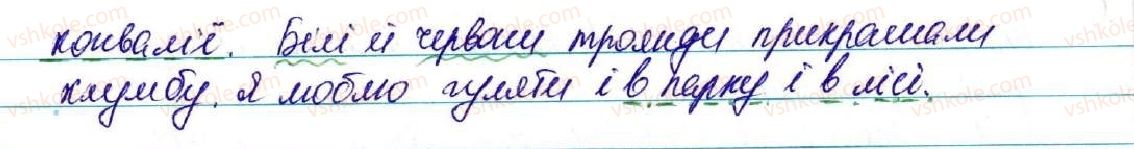 конвалії. Білі й червоні троянди прикрашали
клумбу. Я люблю гуляти і в парку і в лісі.